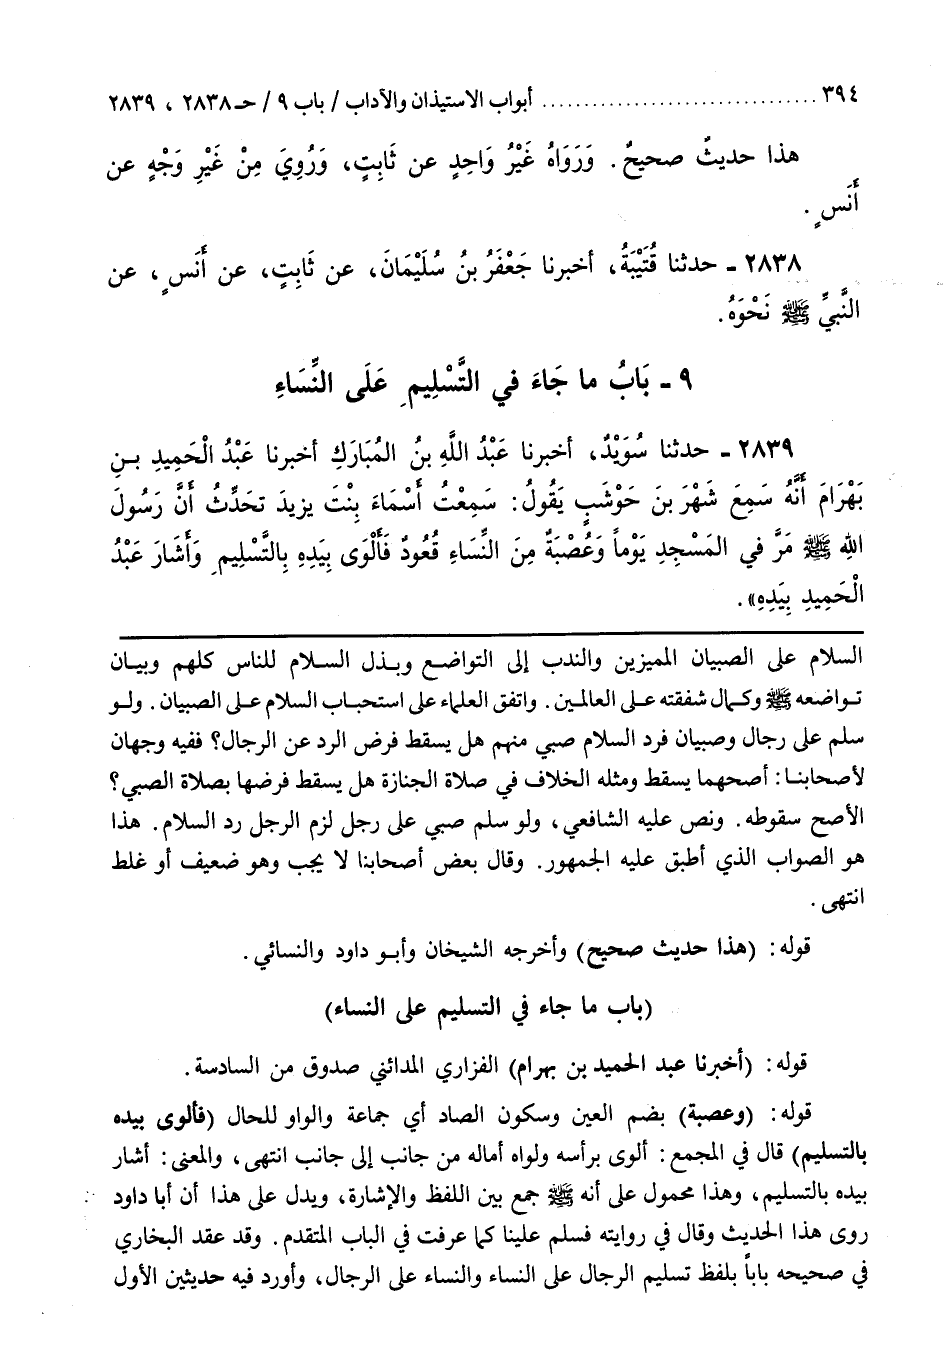 ٣٩٤ ................................ أبواب الاستيذان والآداب / باب ٩ / حـ ٢٨٣٨ ، ٢٨٣٩
هذا حديثٌ صحيحٌ. وَرَوَاهُ غَيْرُ وَاحِدٍ عن ثَابِتٍ، وَرُوِيَ مِنْ غَيْرِ وَجْهٍ عن
أَنَسٍ.
٢٨٣٨ ـ حدثنا قُتَيْبَةُ، أخبرنا جَعْفَرُ بنُ سُلَيْمَانَ، عن ثَابِتٍ، عن أَنَسٍ، عن
النَّبيِّ ﷺ نَحْوَهُ.
٩ ـ بَابُ ما جَاءَ في التَّسْلِيمِ عَلَى النِّسَاءِ
٢٨٣٩ ـ حدثنا سُوَيْدٌ، أخبرنا عَبْدُ اللَّهِ بنُ المُبَارَكِ أخبرنا عَبْدُ الْحَمِيدِ بـنِ
بَهْرَامَ أَنَّهُ سَمِعَ شَهْرَ بنَ حَوْشَبٍ يَقُولُ: سَمِعْتُ أَسْمَاءَ بِنْتَ يزيدَ تحَدِّثُ أَنَّ رَسُولَ
اللهِ ﷺ مَرَّ في المَسْجِدِ يَوْماً وَعُصْبَةٌ مِنَ النِّسَاءِ قُعُودٌ فَأَلْوَى بِيَدِهِ بِالتَّسْلِيمِ وَأَشَارَ عَبْدُ
الْحَمِيدِ بِيَدِهِ».
السلام على الصبيان المميزين والندب إلى التواضع وبذل السلام للناس كلهم وبيان
تواضعه ﷺ وكمال شفقته على العالمين. واتفق العلماء على استحباب السلام على الصبيان. ولو
سلم على رجال وصبيان فرد السلام صبي منهم هل يسقط فرض الرد عن الرجال؟ ففيه وجهان
لأصحابنا: أصحهما يسقط ومثله الخلاف في صلاة الجنازة هل يسقط فرضها بصلاة الصبي؟
الأصح سقوطه. ونص عليه الشافعي، ولو سلم صبي على رجل لزم الرجل رد السلام. هذا
هو الصواب الذي أطبق عليه الجمهور. وقال بعض أصحابنا لا يجب وهو ضعيف أو غلط
انتهى.
قوله: (هذا حديث صحيح) وأخرجه الشيخان وأبو داود والنسائي.
(باب ما جاء في التسليم على النساء)
قوله: (أخبرنا عبد الحميد بن بهرام) الفزاري المدائني صدوق من السادسة.
قوله: (وعصبة) بضم العين وسكون الصاد أي جماعة والواو للحال (فألوى بيده
بالتسليم) قال في المجمع: ألوى برأسه ولواه أماله من جانب إلى جانب انتهى، والمعنى: أشار
بيده بالتسليم، وهذا محمول على أنه ﷺ جمع بين اللفظ والإشارة، ويدل على هذا أن أبا داود
روى هذا الحديث وقال في روايته فسلم علينا كما عرفت في الباب المتقدم. وقد عقد البخاري
في صحيحه باباً بلفظ تسليم الرجال على النساء والنساء على الرجال، وأورد فيه حديثين الأول